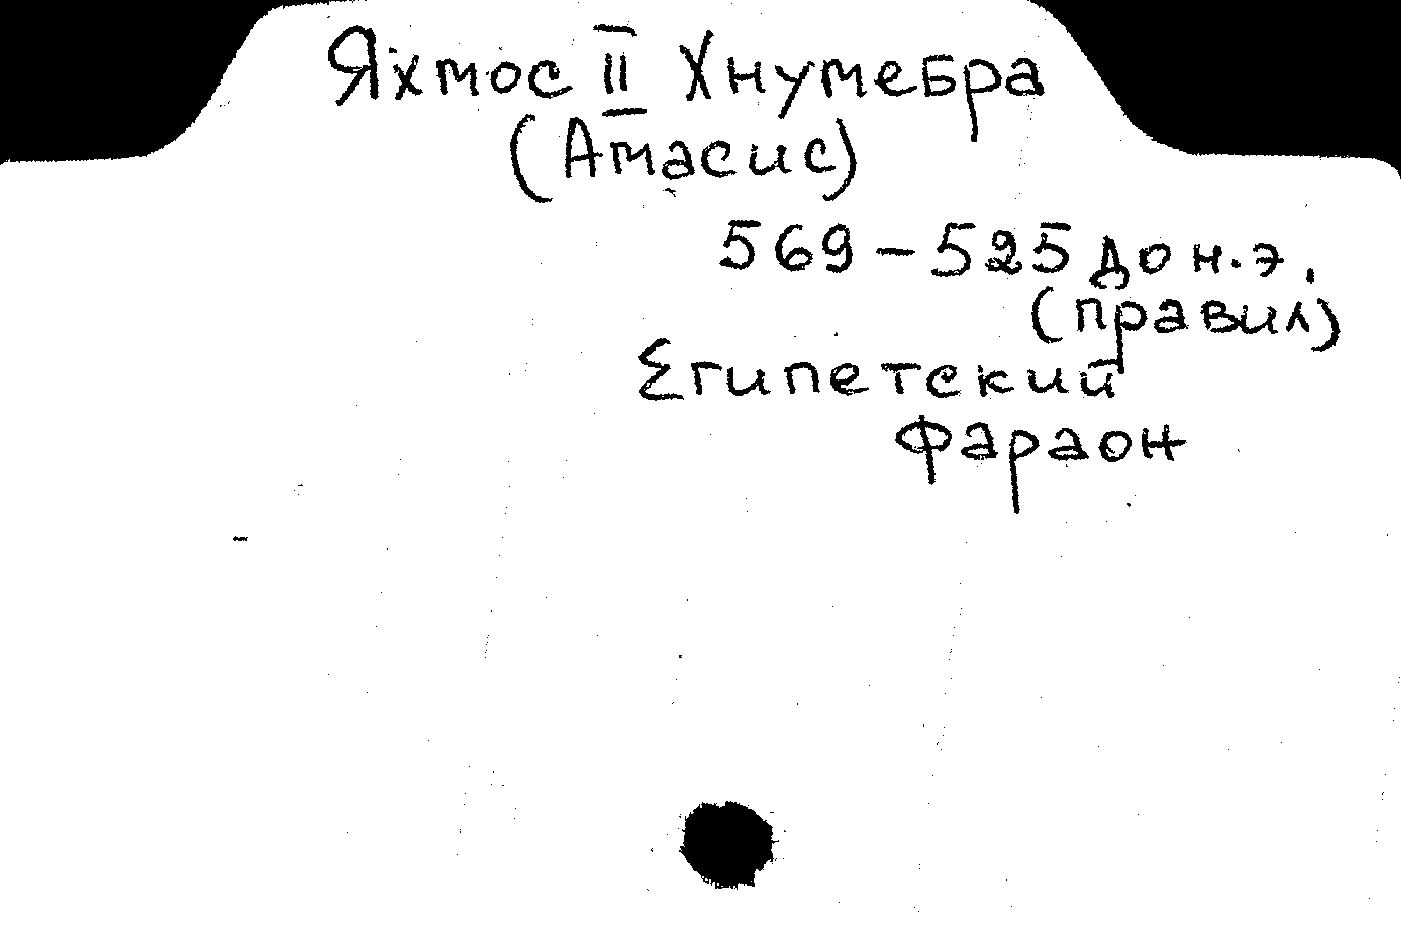 Яхмос II Хнумебра
(Амасис)
569 – 525 до н.э.
(правил)
Египетский
фараон